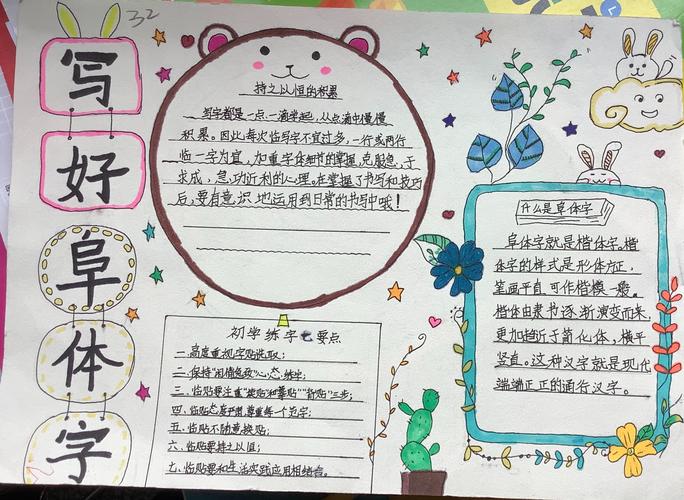 32
写
好
阜
体
字
持之以恒的积累
写字都是一点一滴坐起，从点滴中慢慢
积累。因此，每次临写字不宜过多，一行或两行
临一字为宜，加重字体细节的掌握，克服急于
求成，急功近利的心理。在掌握了书写和技巧
后，要有意识地运用到日常的书写中哦！
初学练字七要点
一.高度重视字贴选取；
二.保持"闲情逸致"心态练字；
三.临贴要注重"摹贴"三步；
四.临贴态度严肃，尊重每个范字；
五.临贴不随意换贴；
六.临贴要持之以恒；
七.临贴要和生活实践应用相结合。
什么是阜体字
阜体字就是楷体字。楷
体字的样式是形体方正，
笔画平直，可作楷模一般。
楷体由隶书逐渐演变而来，
更加趋于简化体，横平
竖直。这种汉字就是现代
端端正正的通行汉字。